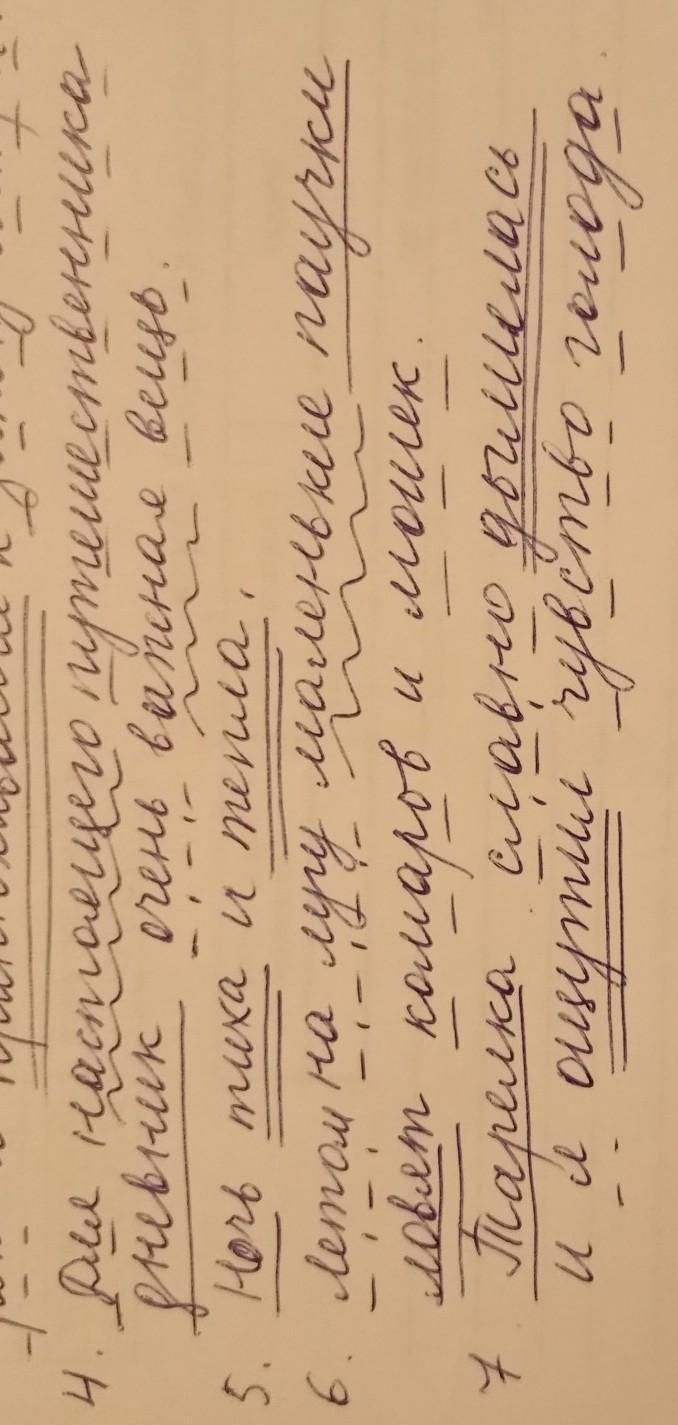 4. Для настоящего путешественника
дневник очень важная вещь.
5. Ночь тиха и тепла.
6. Летом на лугу маленькие паучки
ловят комаров и мошек.
7. Тарелка славно дымилась
и я ощутил чувство голода.